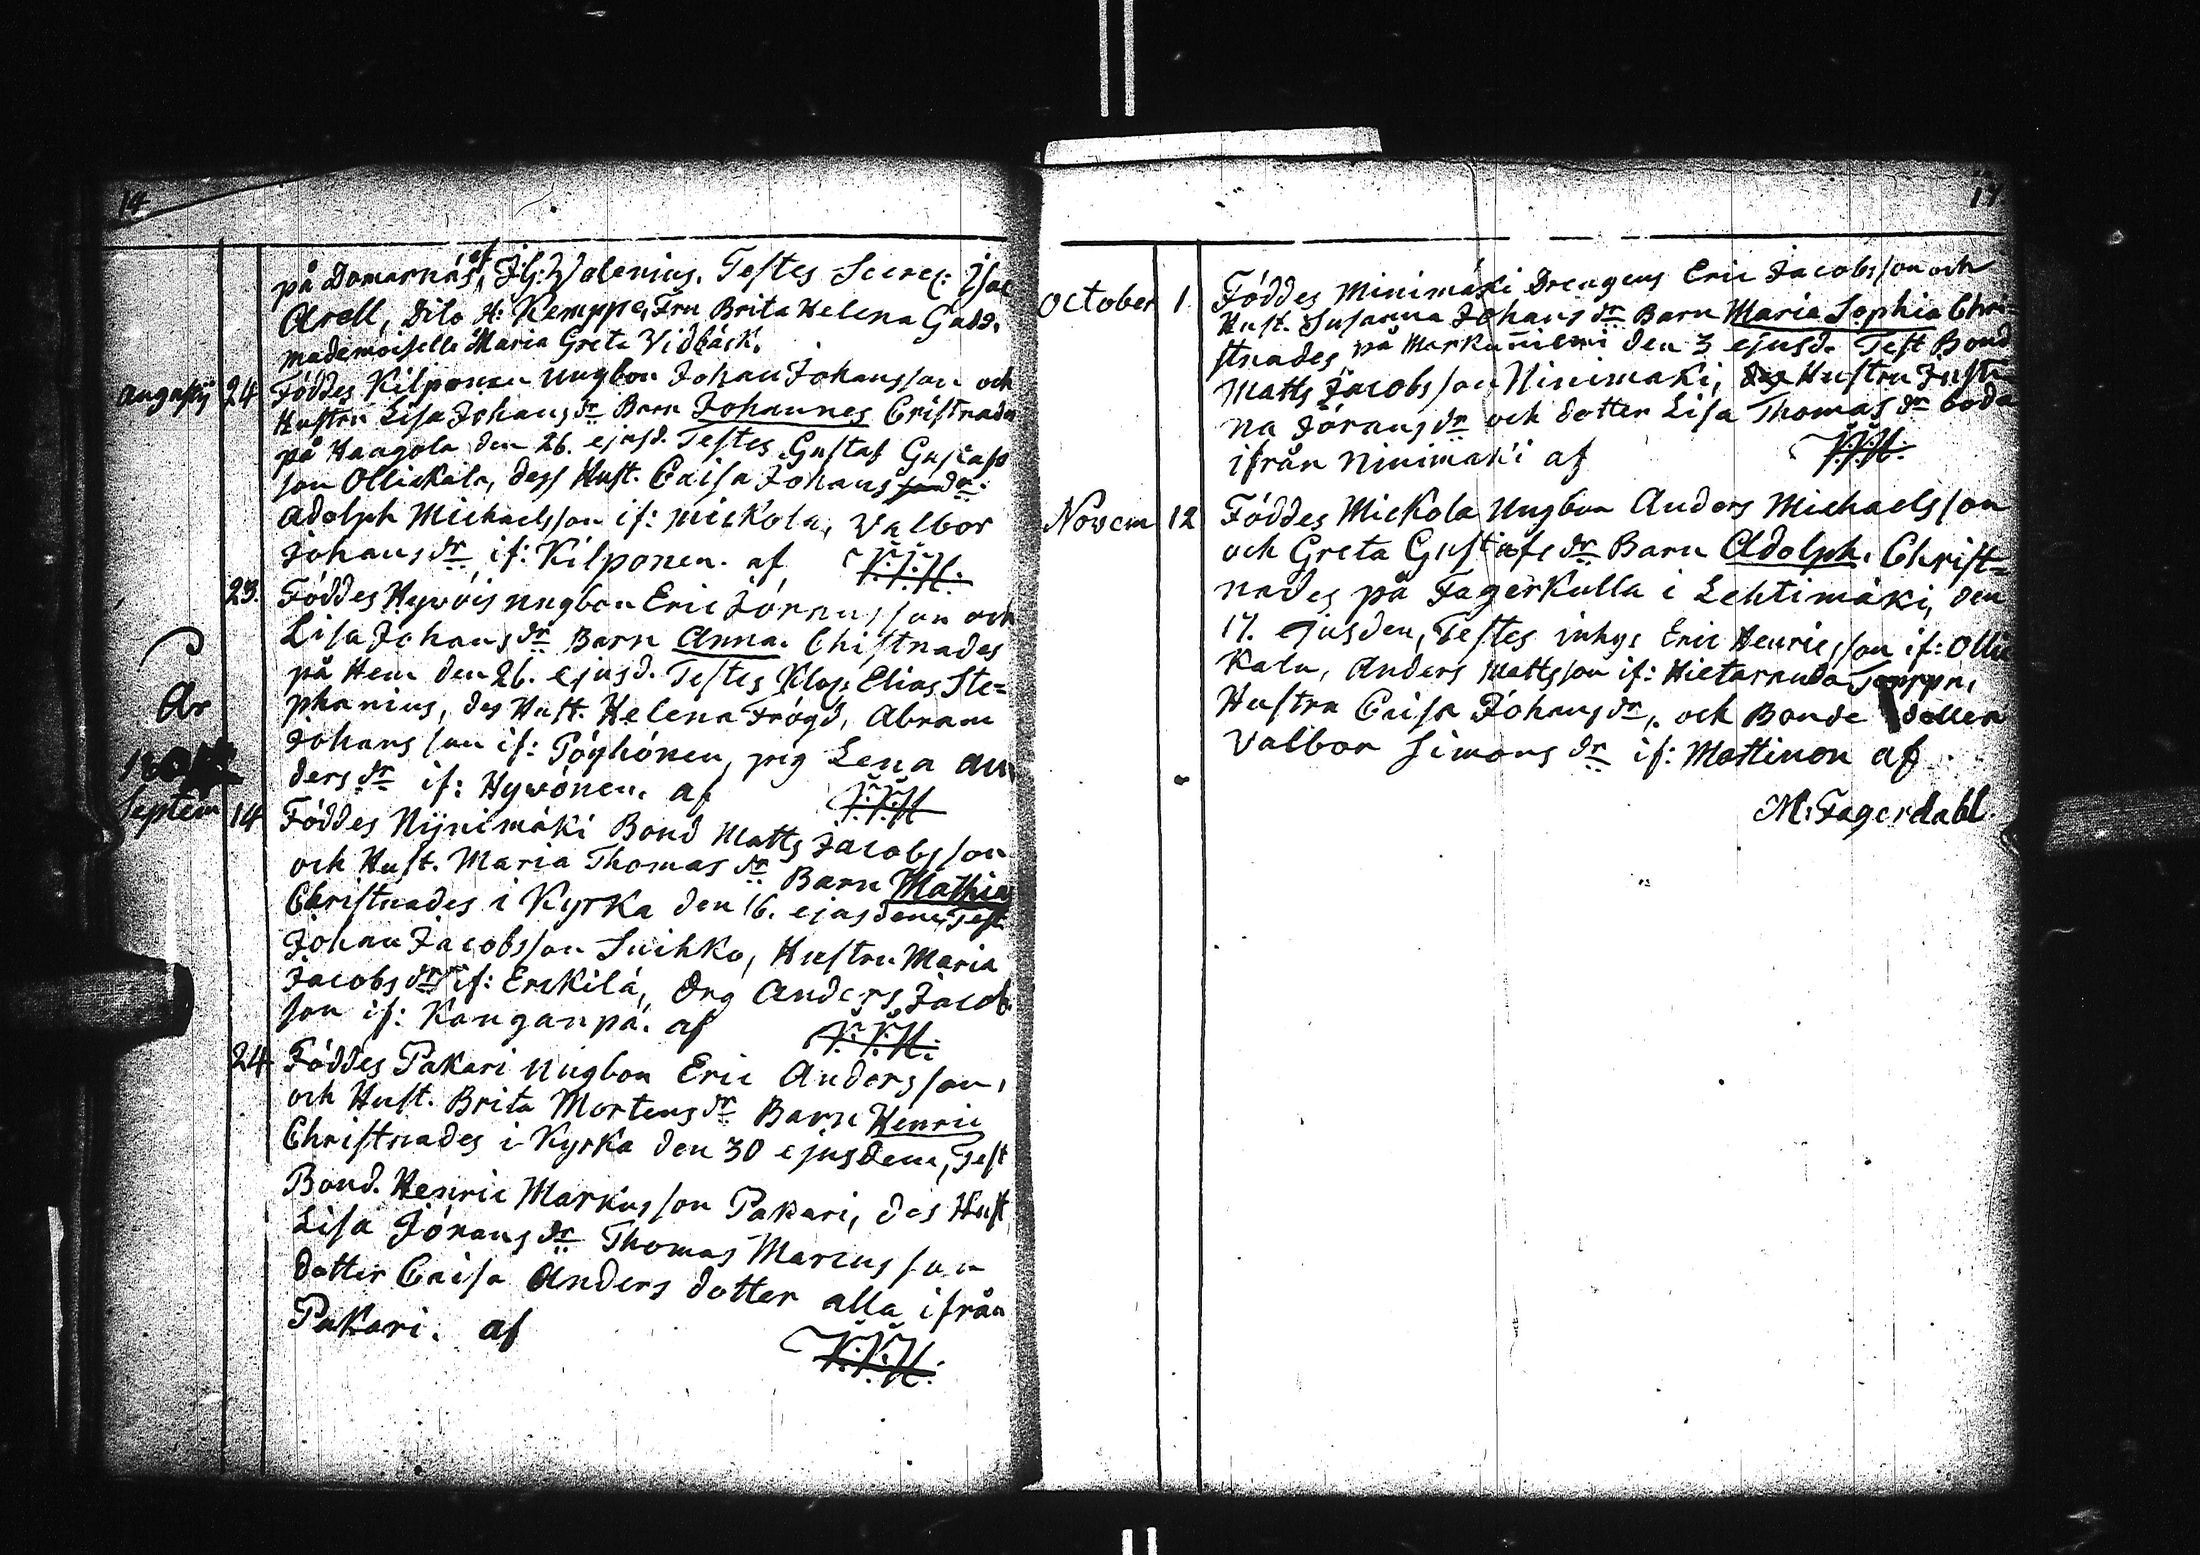 14
på Domarnäs, af Fh: Walenius. Testes Secret: Isac
Arell, dito H: Kemppe, Fru Brita Helena Gadd,
mademoiselle Maria Greta Vidbäck.
Augustij 24 Föddes Kilponen Ungbon Johan Johansson och
Hustru Lisa Johans dr Barn Johannes Cristnades
på Haagola den 26. ejusd. Testes Gustaf Gustafs
son Ollickala, dess Hust. Caisa Johans dr:
Adolph Michaelsson if: Mickola, Valbor
Johans dr if: Kilponen. af V.P.H:
23. Föddes Hyvöis ungbon Eric Jöransson och
Lisa Johans dr Barn Anna. Chistnades
på Hem den 26. ejusd. Testes Klog: Elias Ste=
phanius, des Hust. Helena Frögd, Abram
Johansson if: Pöyhönen, pig Lena An
ders dr if: Hyvönen. af V.P.H
År
1804
Septem 14 Föddes Nijnimäki Bond Matts Jacobsson
och Hust. Maria Thomas dr Barn Mathias
Christnades i Kyrka den 16. ejusdem, Test.
Johan Jacobsson Suihko, Hustru Maria
Jacobs dr if: Erckilä, Drg Anders Jacob
son if: Kanganpä. af V.P.H:
24 Föddes Pakari Ungbon Eric Andersson,
och Hust. Brita Mortens dr Barn Henric
Christnades i Kyrka den 30 ejusdem, Test
Bond. Henric Markusson Pakari, des Hust
Lisa Jörans dr Thomas Marcusson
dotter Caisa Anders dotter alla ifrån
Pakari. af V.P.H:
17
October 1 Föddes Minimäki Drengens Eric Jacobsson och
Hust. Susanna Johans dr Barn Maria Sophia Chri=
stnades på Markuniemi den 3 ejusd. Test Bond
Matts Jacobsson Ninimäki, Hustru Justi
na Jörans dr och dotter Lisa Thomas dr boda
ifrån Ninimäki af V.P.H:
Novem 12 Föddes Mickola Ungbon Anders Michaelsson
och Greta Gustafs dr Barn Adolph. Christ=
nades på Fagerkulla i Lehtimäki, den
17. ejusdem, Testes inhys Eric Henricsson if: Olli
kala, Anders Mattsson if: Hietaruda
Hustra Caisa Johans dr, och Bonde dotter
Valbor Simons dr if: Mattinen af
M: Fagerdahl.